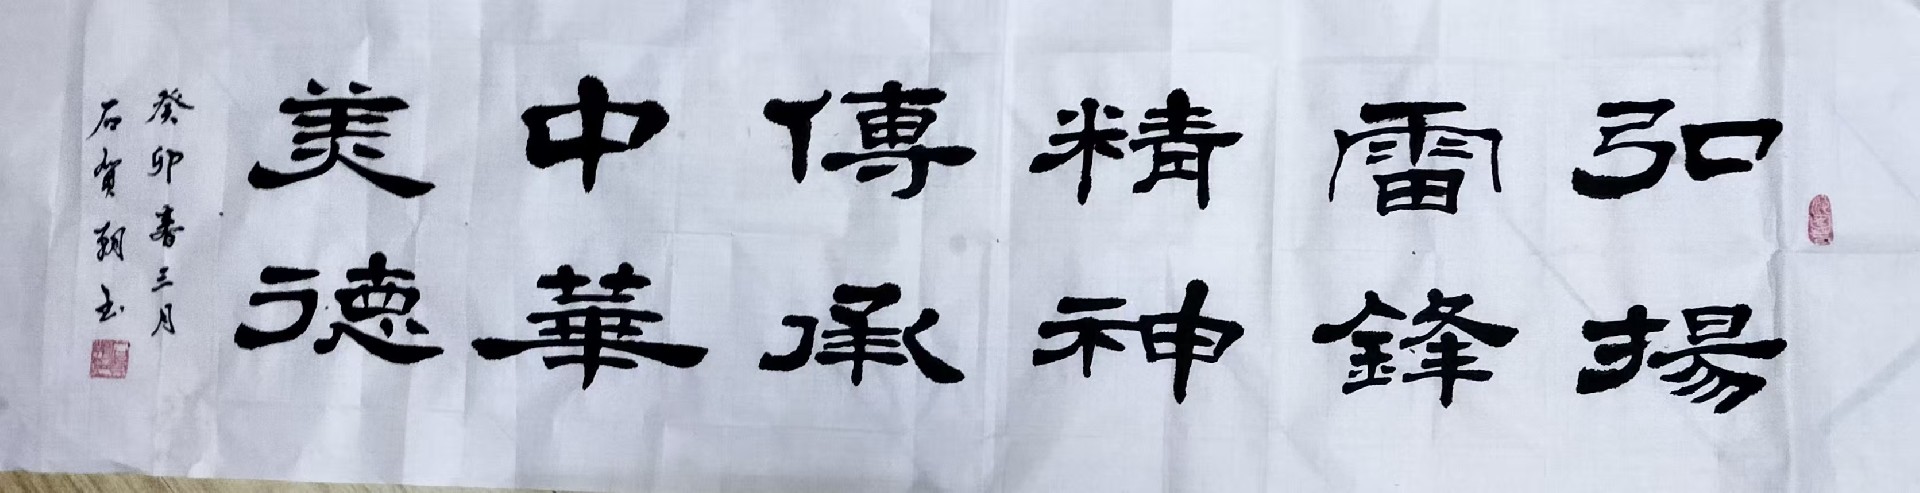 弘揚
雷鋒
精神
傳承
中華
美德
癸卯春三月
石賀朝玉